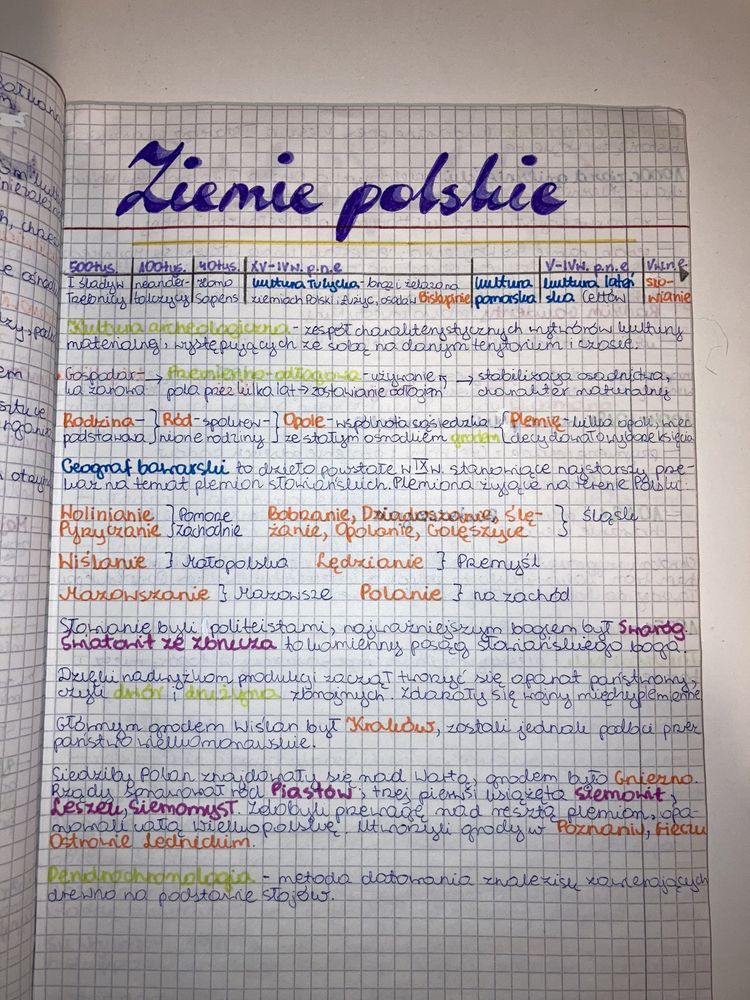 Ziemie polskie
500tys. 100tys. 40tys. XV-IVw. p.n.e V-IVw. p.n.e Vw.n.e.
I ślady w neander- Homo kultura łużycka - brąz i żelazo na kultura kultura lateń sło-
Trzebnicy talczycy Sapiens ziemiach Polski, Łużyc, osada w Biskupinie pomorska ska Celtów wianie
Kultura archeologiczna - zespół charakterystycznych wytworów kultury
materialnej, występujących ze sobą na danym terytorium i czasie.
Gospodar- → żarowo-odłogowa - używanie → stabilizacja osadnictwa,
ka żarowa pola przez kilka lat → zostawianie odłogiem charakter naturalny
Rodzina- } Ród - spokrew- } Opole - wspólnota sąsiedzka } Plemię - kilka opoli, wiec
podstawowa nione rodziny ze stałym ośrodkiem grodem decydował o wyborze księcia
Geograf bawarski to dzieło powstałe w IXw. stanowiące najstarszy prze-
kaz na temat plemion słowiańskich. Plemiona żyjące na terenie Polski:
Wolinianie } Pomorze Bobrzanie, Dziadoszanie, Ślę- } Śląsk
Pyrzyczanie zachodnie żanie, Opolanie, Golęszyce
Wiślanie } Małopolska Lędzianie } Przemyśl
Mazowszanie } Mazowsze Polanie } na zachód
Słowianie byli politeistami, najważniejszym bogiem był Swaróg.
Światowit ze Zbrucza to kamienny posąg słowiańskiego boga.
Dzięki nadwyżkom produkcji zaczął tworzyć się aparat państwowy,
czyli dwór i drużyna zbrojnych. Zdarzały się wojny międzyplemienne
Głównym grodem Wiślan był Kraków, zostali jednak podbici przez
państwo wielkomorawskie.
Siedziby Polan znajdowały się nad Wartą, grodem było Gniezno.
Rządy sprawował ród Piastów; trzej pierwsi książęta Siemowit,
Leszek, Siemomysł. Zdobyli przewagę nad resztą plemion, opa-
nowali całą wielkopolskę. Utworzyli grody w Poznaniu, Gieczu
Ostrowie Lednickim.
Dendrochronologia - metoda datowania znalezisk zawierających
drewno na podstawie słojów.